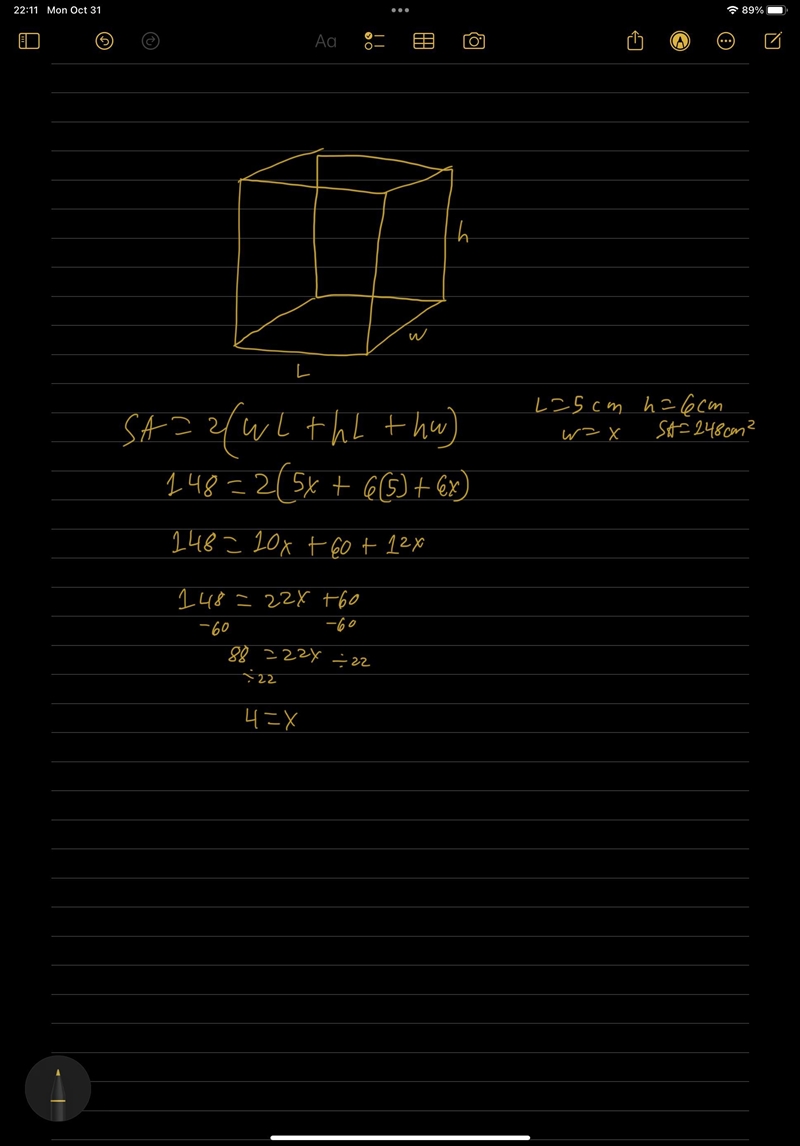 22:11 Mon Oct 31
89%
Aa
h
w
L
L=5cm h=6cm
w=x SA=148cm²
SA=2(wL+hL+hw)
148=2(5x+6(5)+6x)
148=10x+60+12x
148=22x+60
-60 -60
88=22x ÷22
÷22
4=x